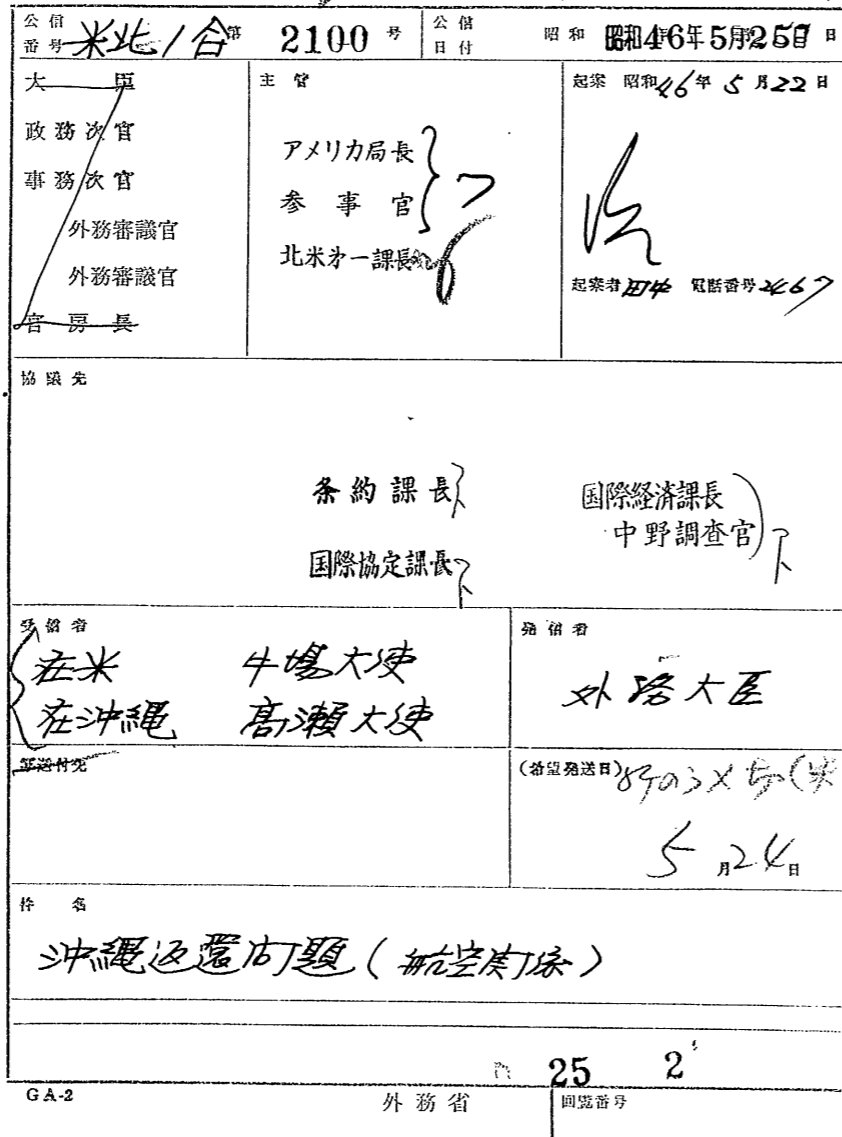 公信番号 米北1合第 2100 号
公信日付 昭和 昭和46年5月25日 日
大臣
政務次官
事務次官
外務審議官
外務審議官
官房長
主管
アメリカ局長
参事官
北米才一課長
起案 昭和46年5月22日
起案者 田中 電話番号 2467
協議先
条約課長
国際協定課長
国際経済課長
中野調査官
受信者
在米 牛場大使
在沖縄 高瀬大使
発信者
外務大臣
写送付先
(希望発送日)
5月24日
件名
沖縄返還問題(航空関係)
25 2
GA-2
外務省
回覧番号